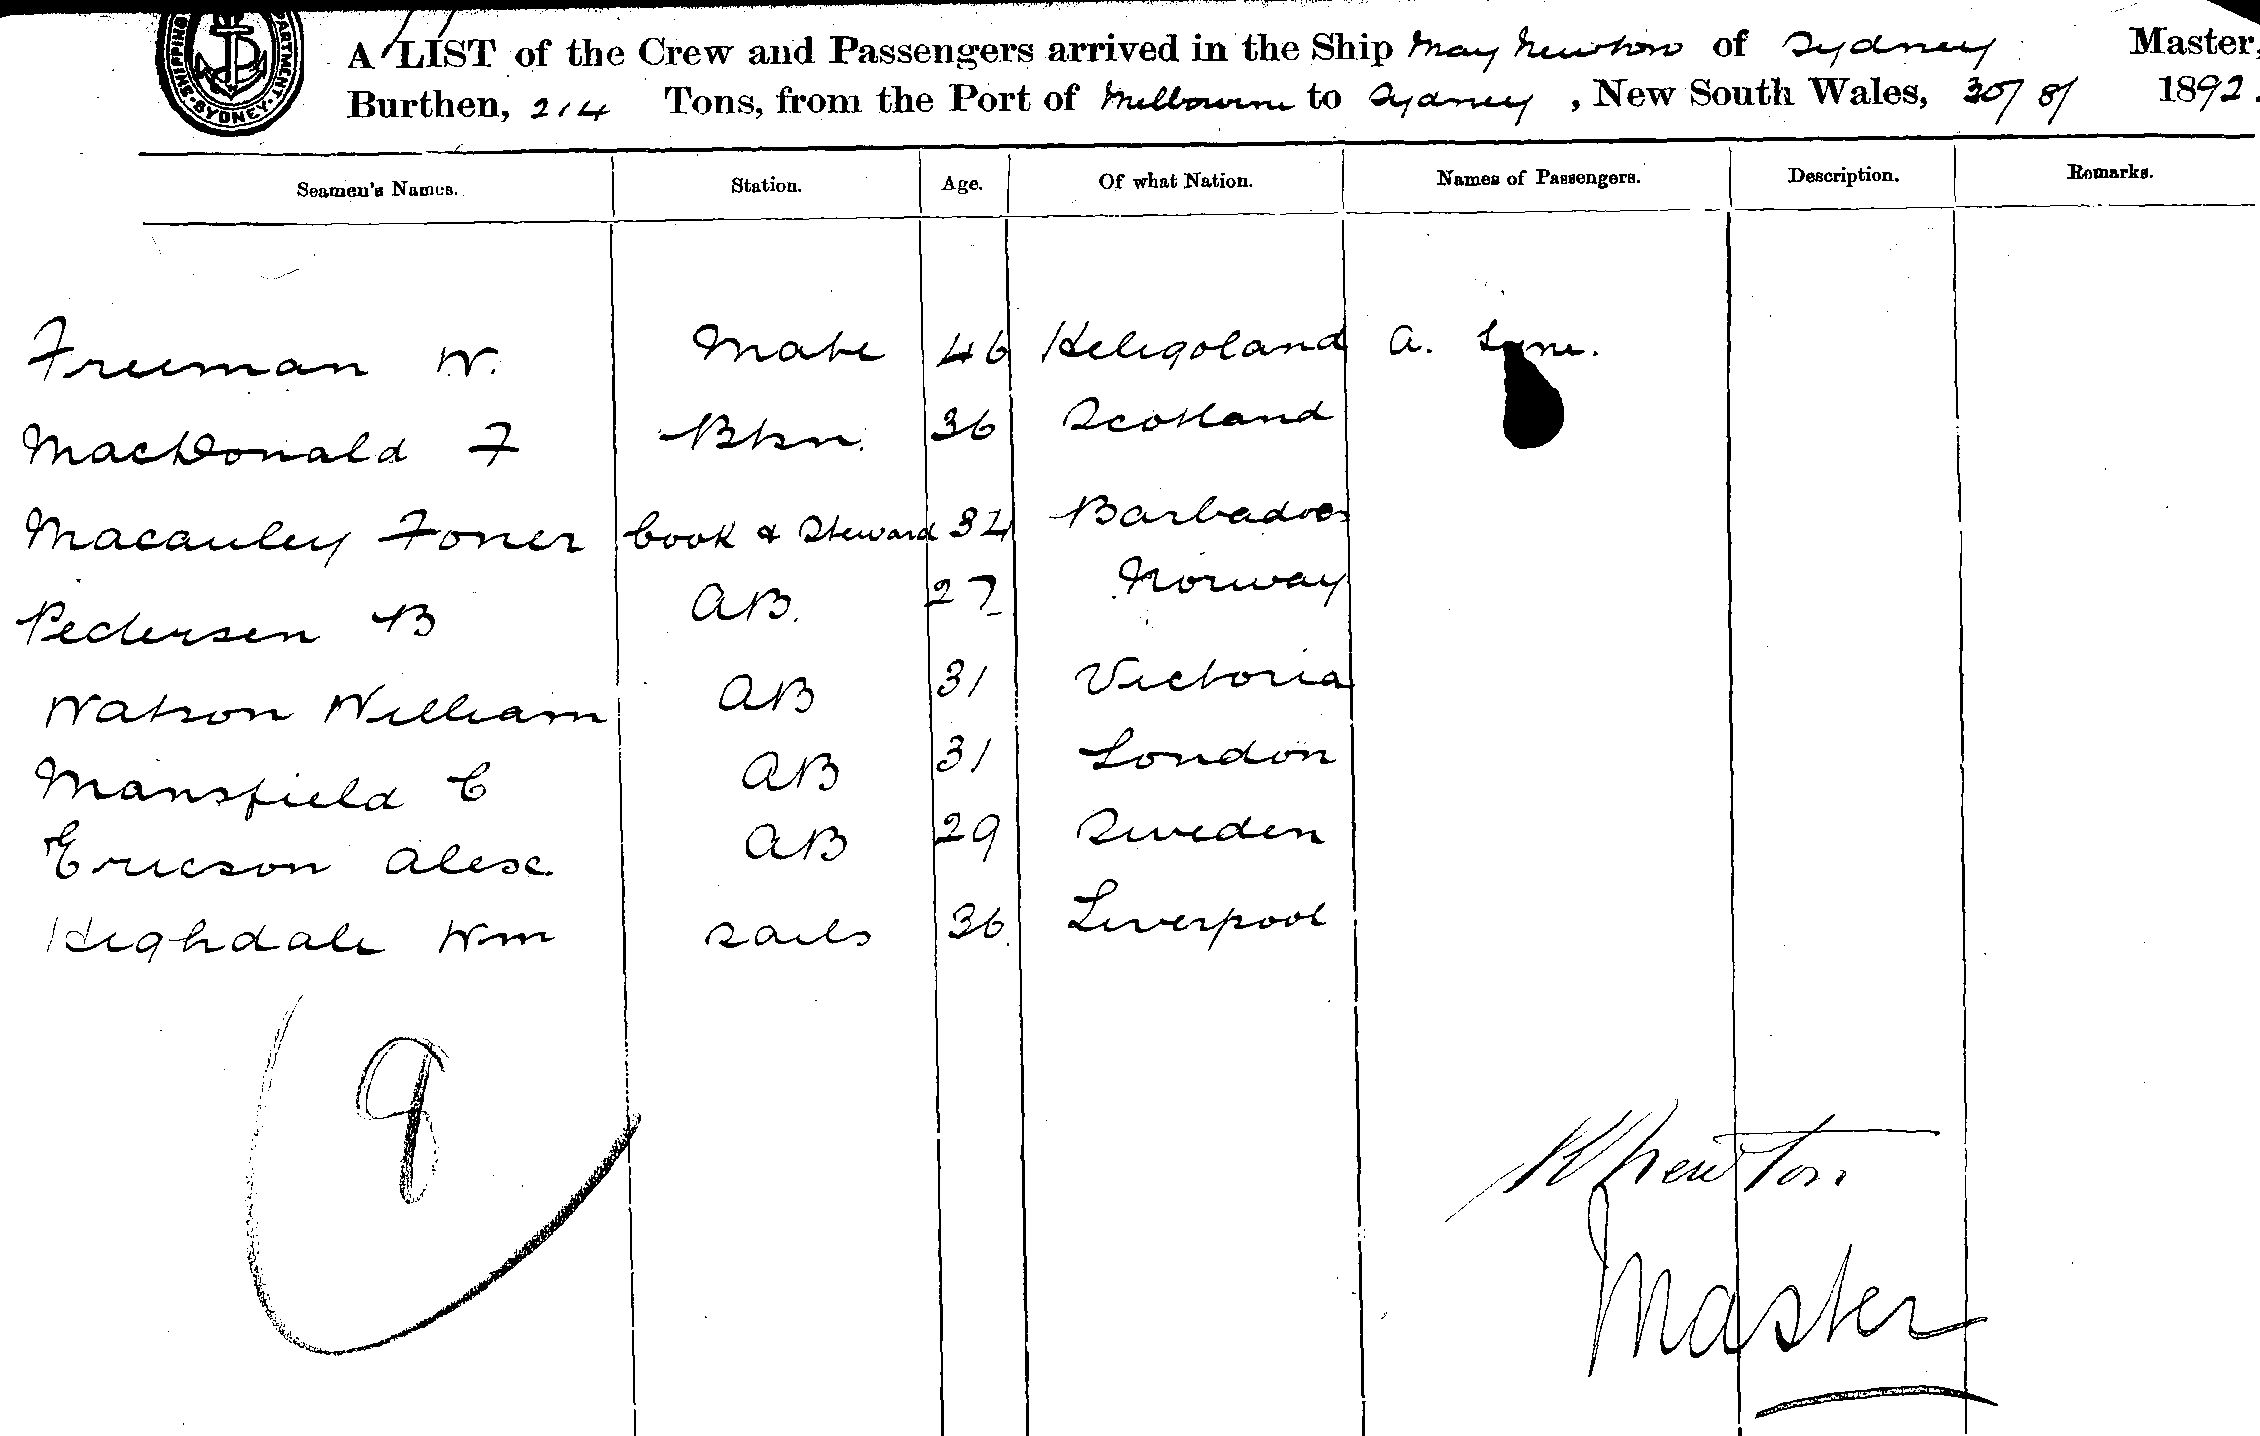 A LIST of the Crew and Passengers arrived in the Ship May Newton of Sydney Master,
Burthen, 214 Tons, from the Port of Melbourne to Sydney, New South Wales, 30/8/ 1892.
Seamen's Names. Station. Age. Of what Nation. Names of Passengers. Description. Remarks.
Freeman W. Mate 46 Heligoland A.
MacDonald F Bsn. 36 Scotland
Macauley Cook & Steward 34 Barbadoes
Pedersen B AB. 27 Norway
Watson William AB 31 Victoria
Mansfield C AB 31 London
Ericson Alex AB 29 Sweden
Heghdale Wm Sails 36 Liverpool
9
Newton
Master